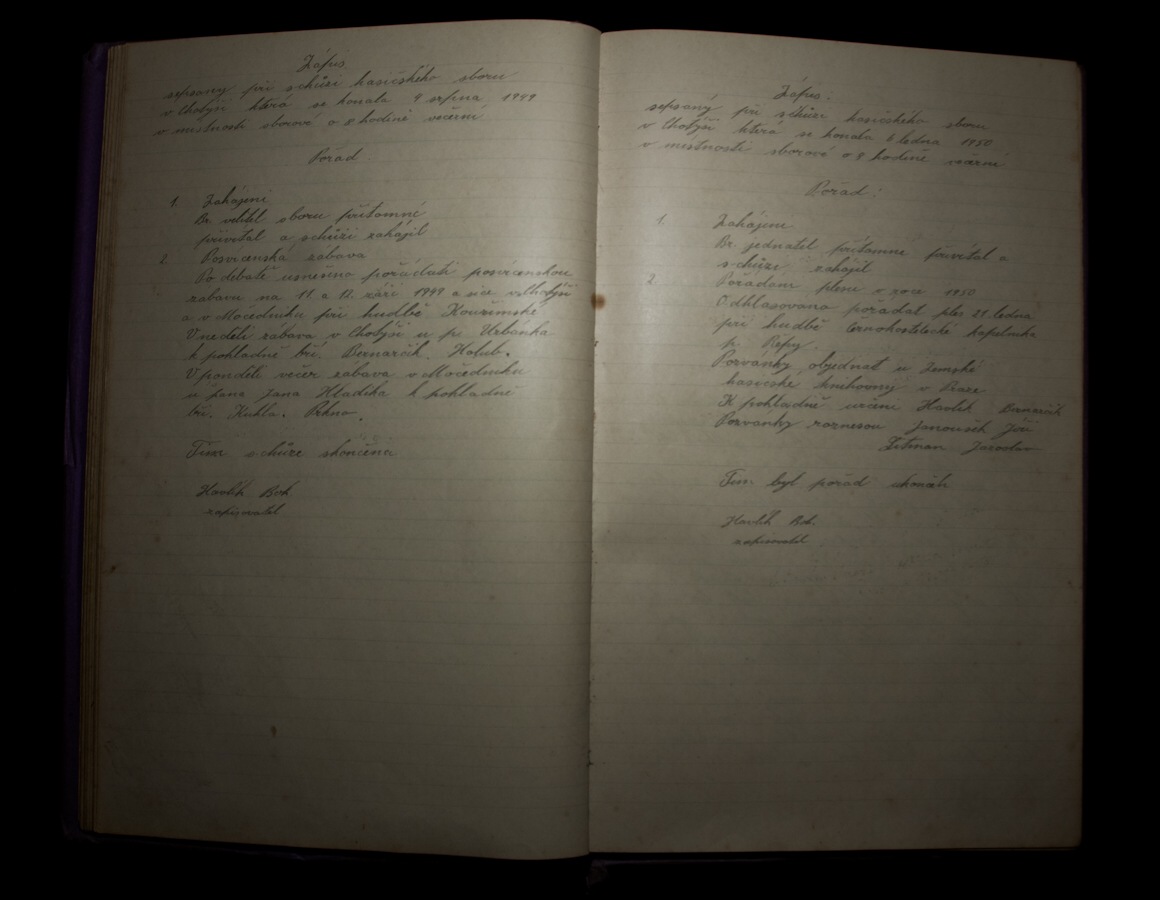 Zápis
sepsaný při schůzi hasičského sboru
v Chotýši která se konala 9 srpna 1949
v místnosti sborové o 8 hodině večerní
Pořad
1. Zahájení
Br. velitel sboru přítomné
přivítal a schůzi zahájil
2. Posvícenská zábava
Po debatě usneseno pořádati posvícenskou
zábavu na 11. a 12. září 1949 a sice v Chotýši
a v Močedníku při hudbě Kouřimské
V neděli zábava v Chotýši u p. Urbánka
k pokladně bří. Bernarčík. Holub.
V pondělí večer zábava v Močedníku
u pana Jana Hladíka k pokladně
bří. Kuhla.
Tím schůze skončena
Havlík Boh.
zapisovatel
Zápis:
sepsaný při schůzi hasičského sboru
v Chotýši která se konala 6 ledna 1950
v místnosti sborové o 8 hodině večerní
Pořad:
1. Zahájení
Br. jednatel přítomné přivítal a
schůzi zahájil
2 Pořádání plesu v roce 1950
Odhlasováno pořádat ples 21 ledna
při hudbě černokostelecké kapelníka
p. Řepy.
Pozvánky objednat u Zemské
hasičské knihovny v Praze
K pokladně určeni Havlík Bernarčík
Pozvánky roznesou Janoušek Jiří
Jaroslav
Tím byl pořad ukončen
Havlík Boh.
zapisovatel